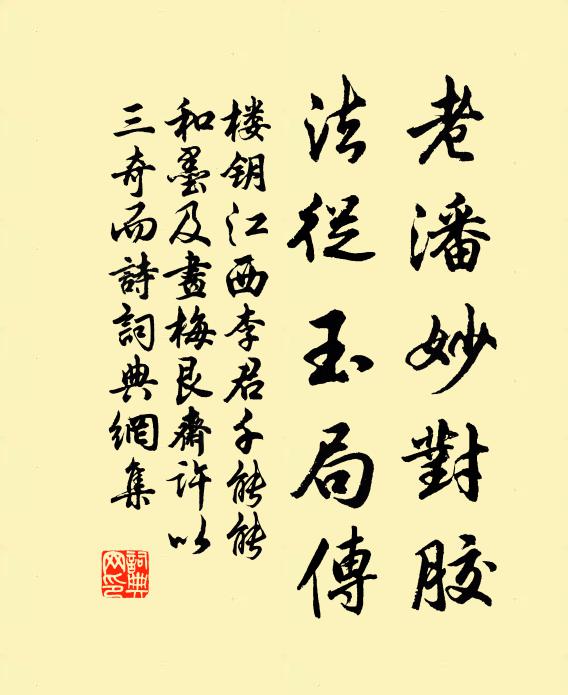 老潘妙對胶
法從玉局傳
楼钥江西李君千能能
和墨及畫梅艮齋许以
三奇而詩詞典網集
詞典网印